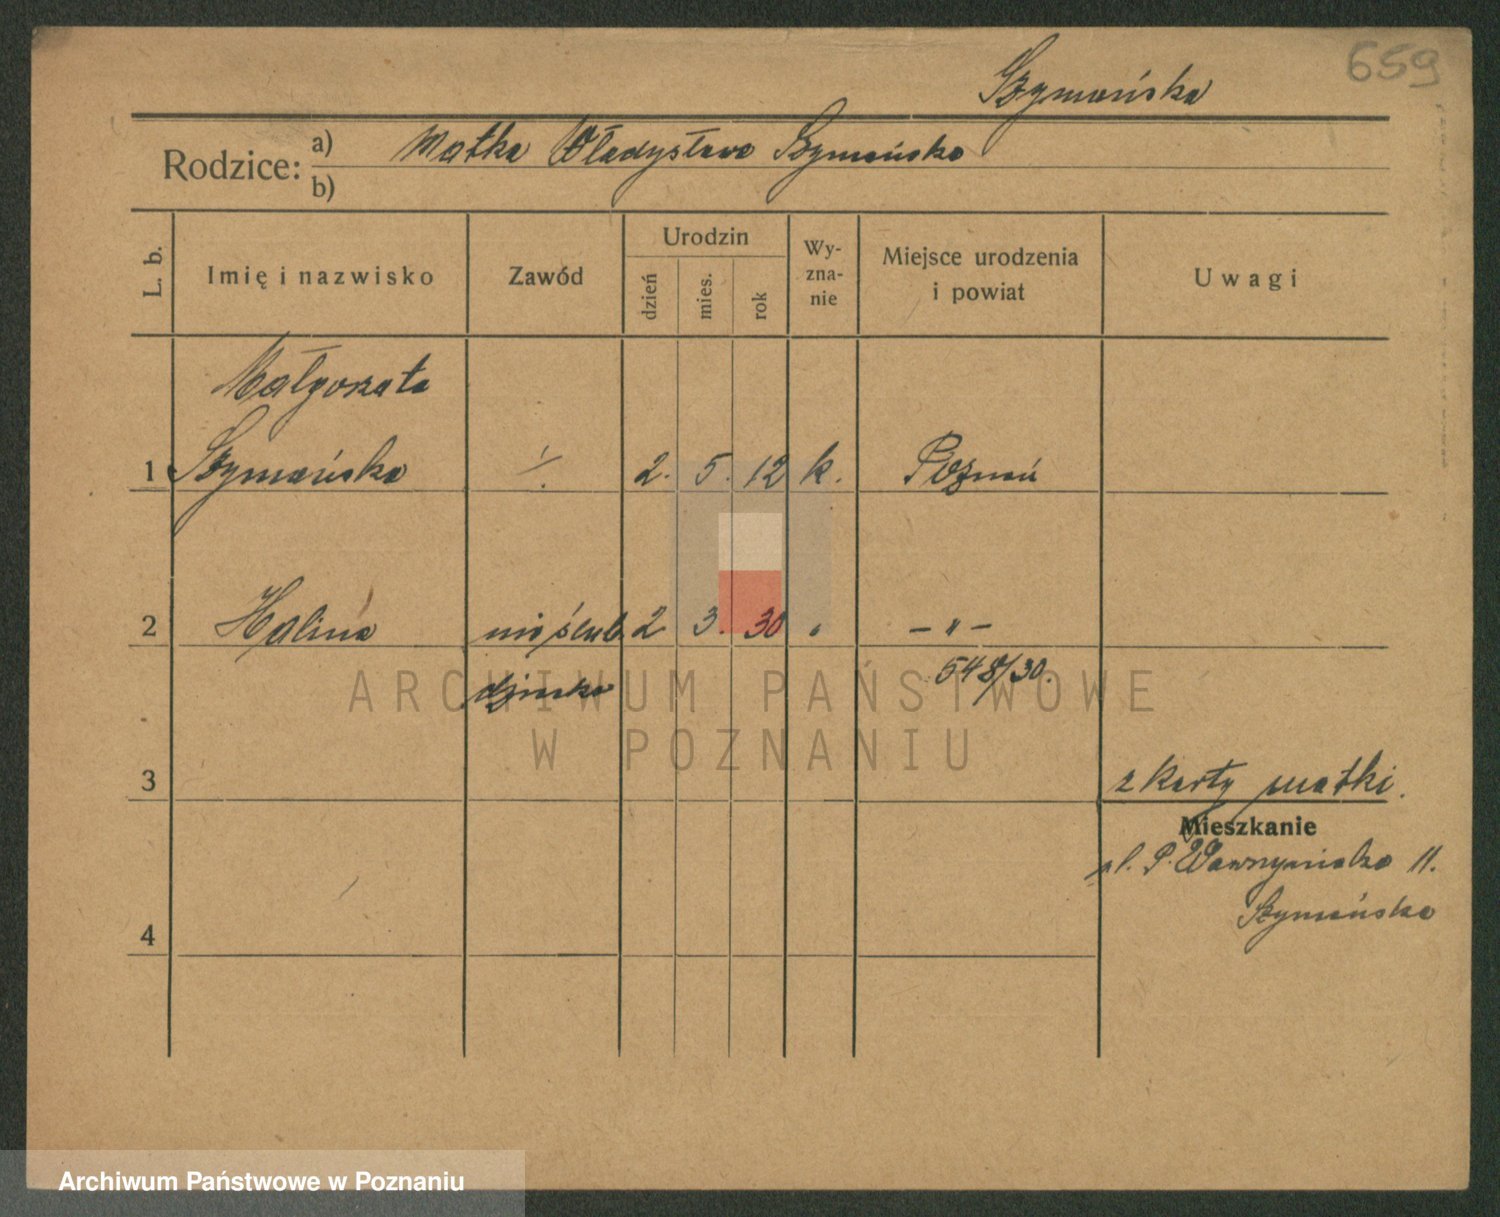 659
Szymańska
Rodzice: a) Matka Władysława Szymańska
b)
L. b. Imię i nazwisko Zawód Urodzin dzień mies. rok Wy-zna-nie Miejsce urodzenia i powiat Uwagi
Małgorzata
1 Szymańska ./. 2. 5. 12 k. Poznań
2 Halina nieślub. 2 3. 30 " – " –
dziecko 548/30.
ARCHIWUM PAŃSTWOWE
W POZNANIU
3 z karty matki.
Mieszkanie
P. Wawrzyniaka 11.
Szymańska
4
Archiwum Państwowe w Poznaniu